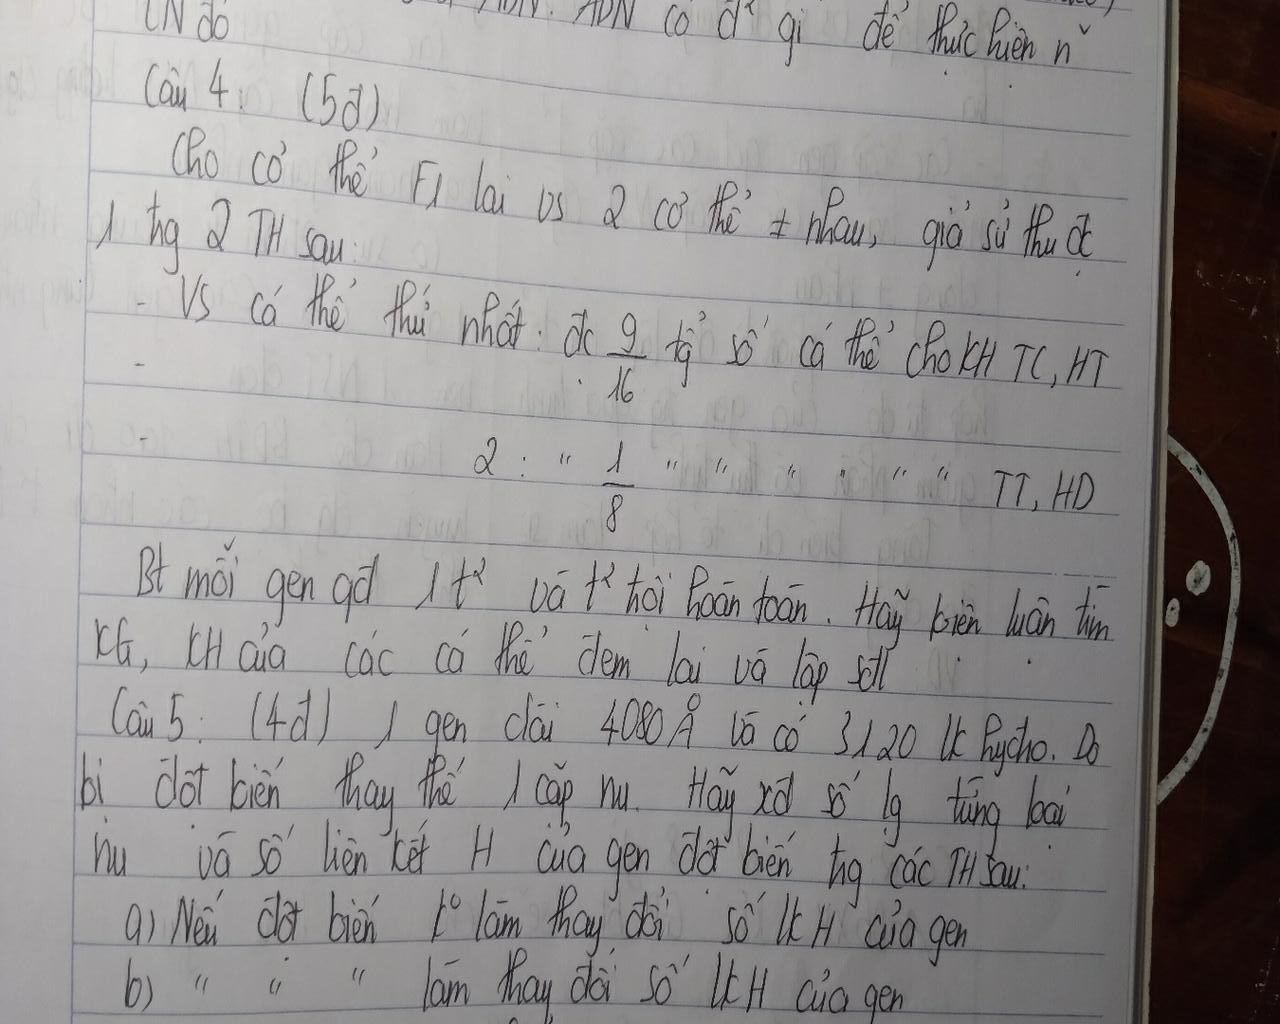 CN đó ADN. ADN có đ² gì để thực hiện n~
Câu 4: (5đ)
Cho cơ thể F1 lai vs 2 cơ thể ≠ nhau, giả sử thu đc
1 tng 2 TH sau:
- Vs cá thể thứ nhất: đc 9/16 tg² số cá thể cho KH TC, HT
-
- 2 : " 1/8 " " " " " " TT, HD
Bt mỗi gen qđ 1 t² và t² trội hoàn toàn. Hãy biện luận tìm
KG, KH của các cá thể đem lai và lập sđl
Câu 5: (4đ) 1 gen dài 4080 Å và có 3120 lk hyđro. Do
bị đột biến thay thế 1 cặp nu. Hãy xđ số lg từng loại
nu và số liên kết H của gen đột biến tng các TH sau:
a) Nếu đột biến k° làm thay đổi số lk H của gen
b) " " " làm thay đổi số lk H của gen